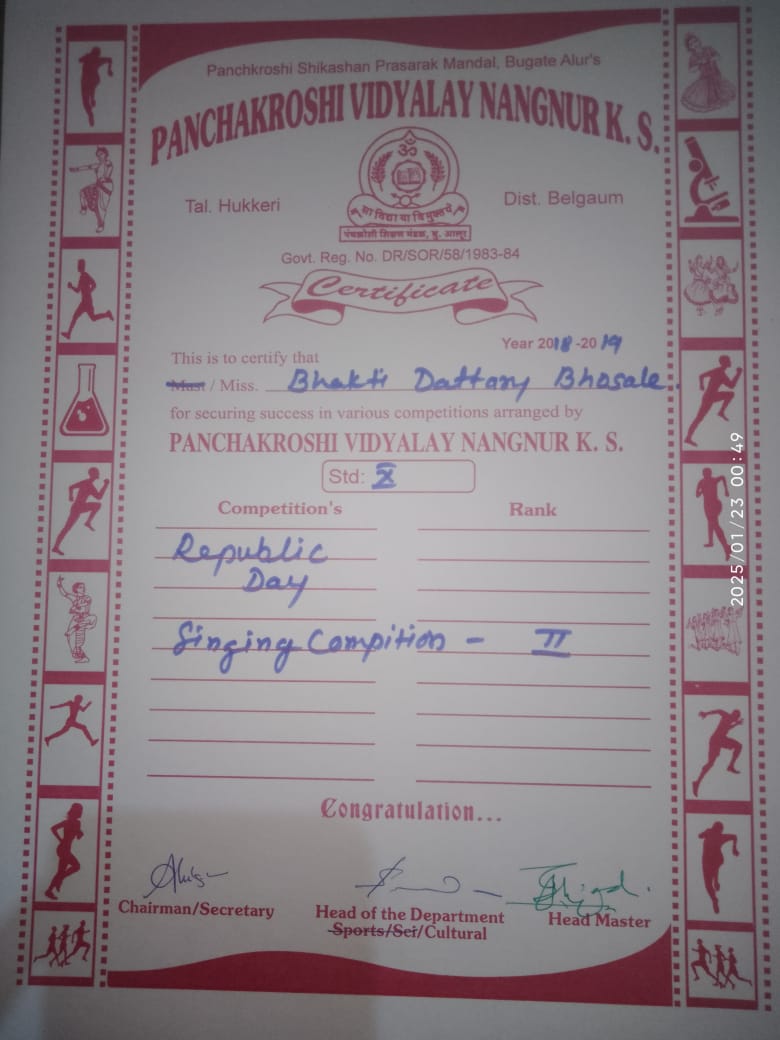 Panchkroshi Shikashan Prasarak Mandal, Bugate Alur's
PANCHAKROSHI VIDYALAY NANGNUR K. S.
ॐ
Tal. Hukkeri
Dist. Belgaum
या विद्या या विमुक्तये
पंचक्रोशी शिक्षण मंडळ, बु. आलूर
Govt. Reg. No. DR/SOR/58/1983-84
Certificate
Year 2018-2019
This is to certify that
Mast / Miss. Bhakti Dattary Bhosale.
for securing success in various competitions arranged by
PANCHAKROSHI VIDYALAY NANGNUR K. S.
Std: X
Competition's Rank
Republic
Day
Singing Compition - II
Congratulation...
Chairman/Secretary
Head of the Department
Sports/Sci/Cultural
Head Master
2025/01/23 00:49